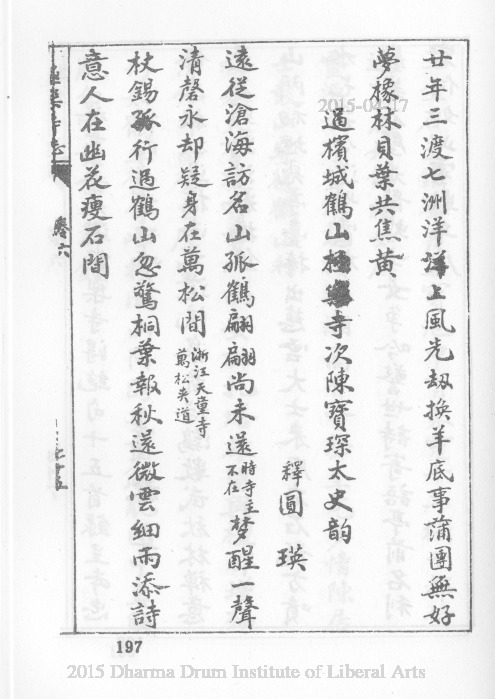 廿年三渡七洲洋洋上風光劫換羊底事蒲團無好
夢橡林貝葉共焦黃
過檳城鶴山極樂寺次陳寶琛太史韵
釋圓瑛
遠從滄海訪名山孤鶴翩翩尚未還時寺主不在梦醒一聲
清磬永却疑身在萬松間浙江天童寺萬松夾道
杖錫孤行過鶴山忽驚桐葉報秋還微雲細雨添詩
意人在幽花瘦石間
卷六
197
2015-04-17
2015 Dharma Drum Institute of Liberal Arts